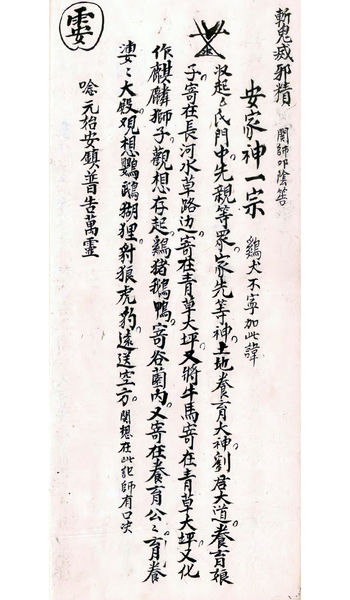 斬鬼滅邪精 關師叩陰筶
安家神一宗 鷄犬不寧加此諱
收起ム氏門中先親等眾家先等神土地養育大神劉君大道養育娘
子寄在長河水草路边寄在青草大坪又將牛馬寄在青草大坪又化
作麒麟獅子觀想存起鷄猪鵝鴨寄谷薗內又寄在養育公公育養
婆婆大殿观想鸚鴟猢狸豺狼虎豹遠送空方 開想在此記師有口决
唸元始安鎮普告萬靈